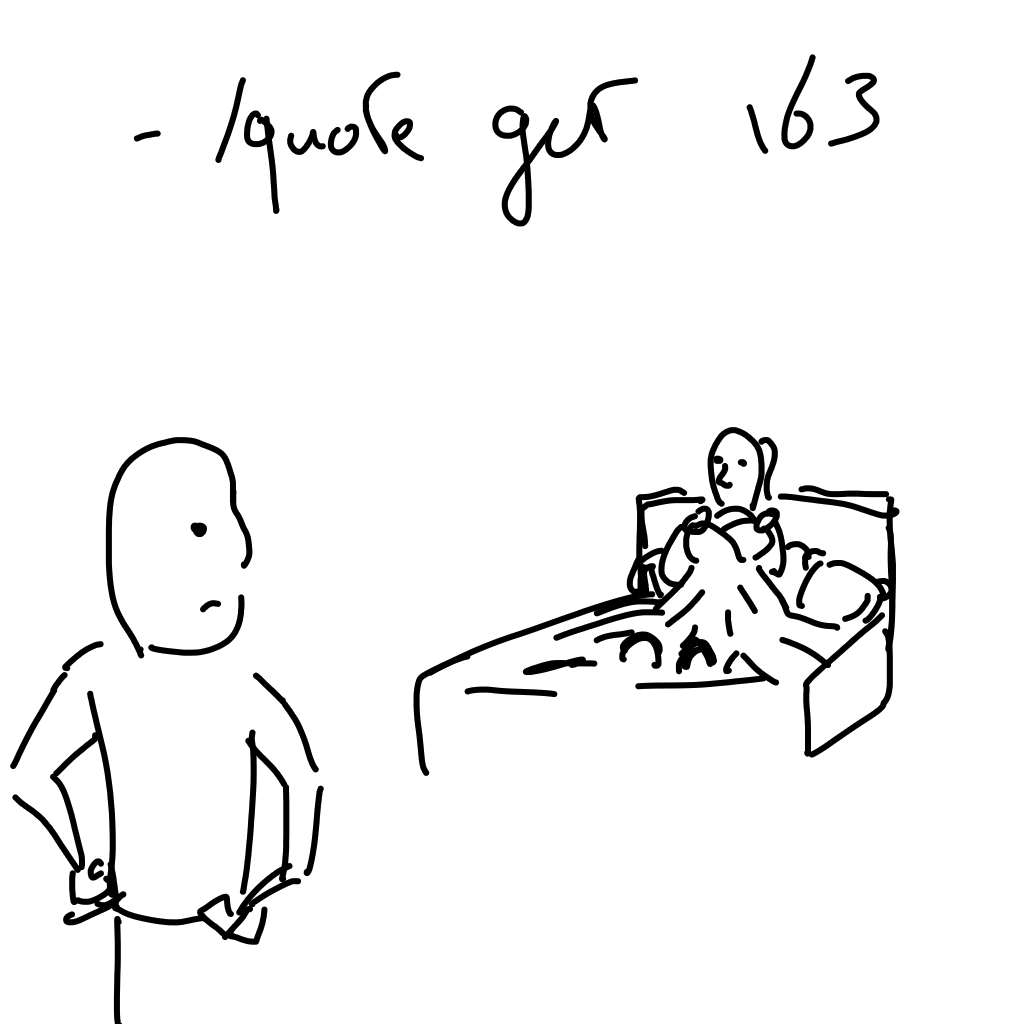 - /quote get 163